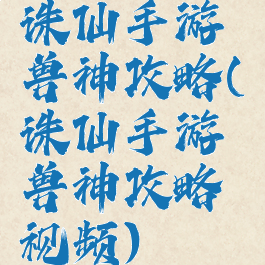 诛仙手游
兽神攻略(
诛仙手游
兽神攻略
视频)